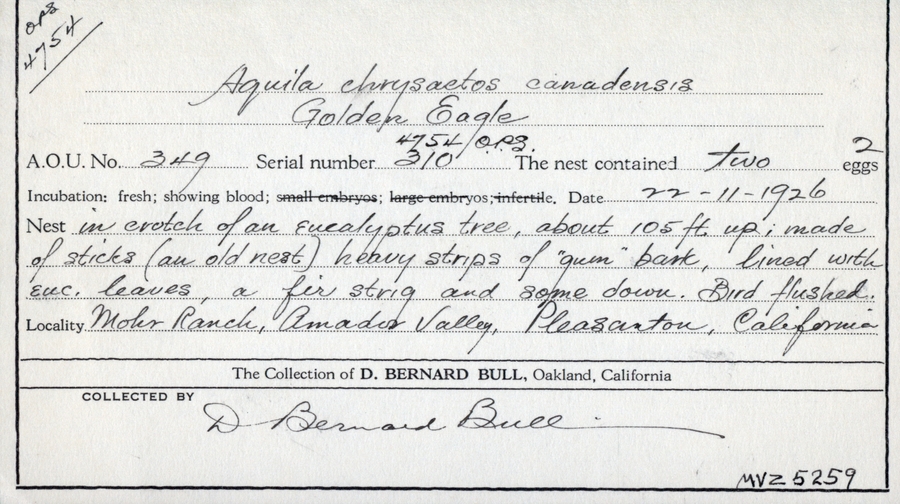 OPS
4754
Aquila chrysaetos canadensis
Golden Eagle
4754/O.P.S.
A.O.U. No. 349 Serial number 310 The nest contained two 2 eggs
Incubation: fresh; showing blood; small embryos; large embryos; infertile. Date 22-11-1926
Nest in crotch of an eucalyptus tree, about 105 ft. up; made
of sticks (an old nest) heavy strips of "gum" bark, lined with
euc. leaves, a fir strig and some down. Bird flushed.
Locality Mohr Ranch, Amador Valley, Pleasanton, California
The Collection of D. BERNARD BULL, Oakland, California
COLLECTED BY
D Bernard Bull
MVZ 5259